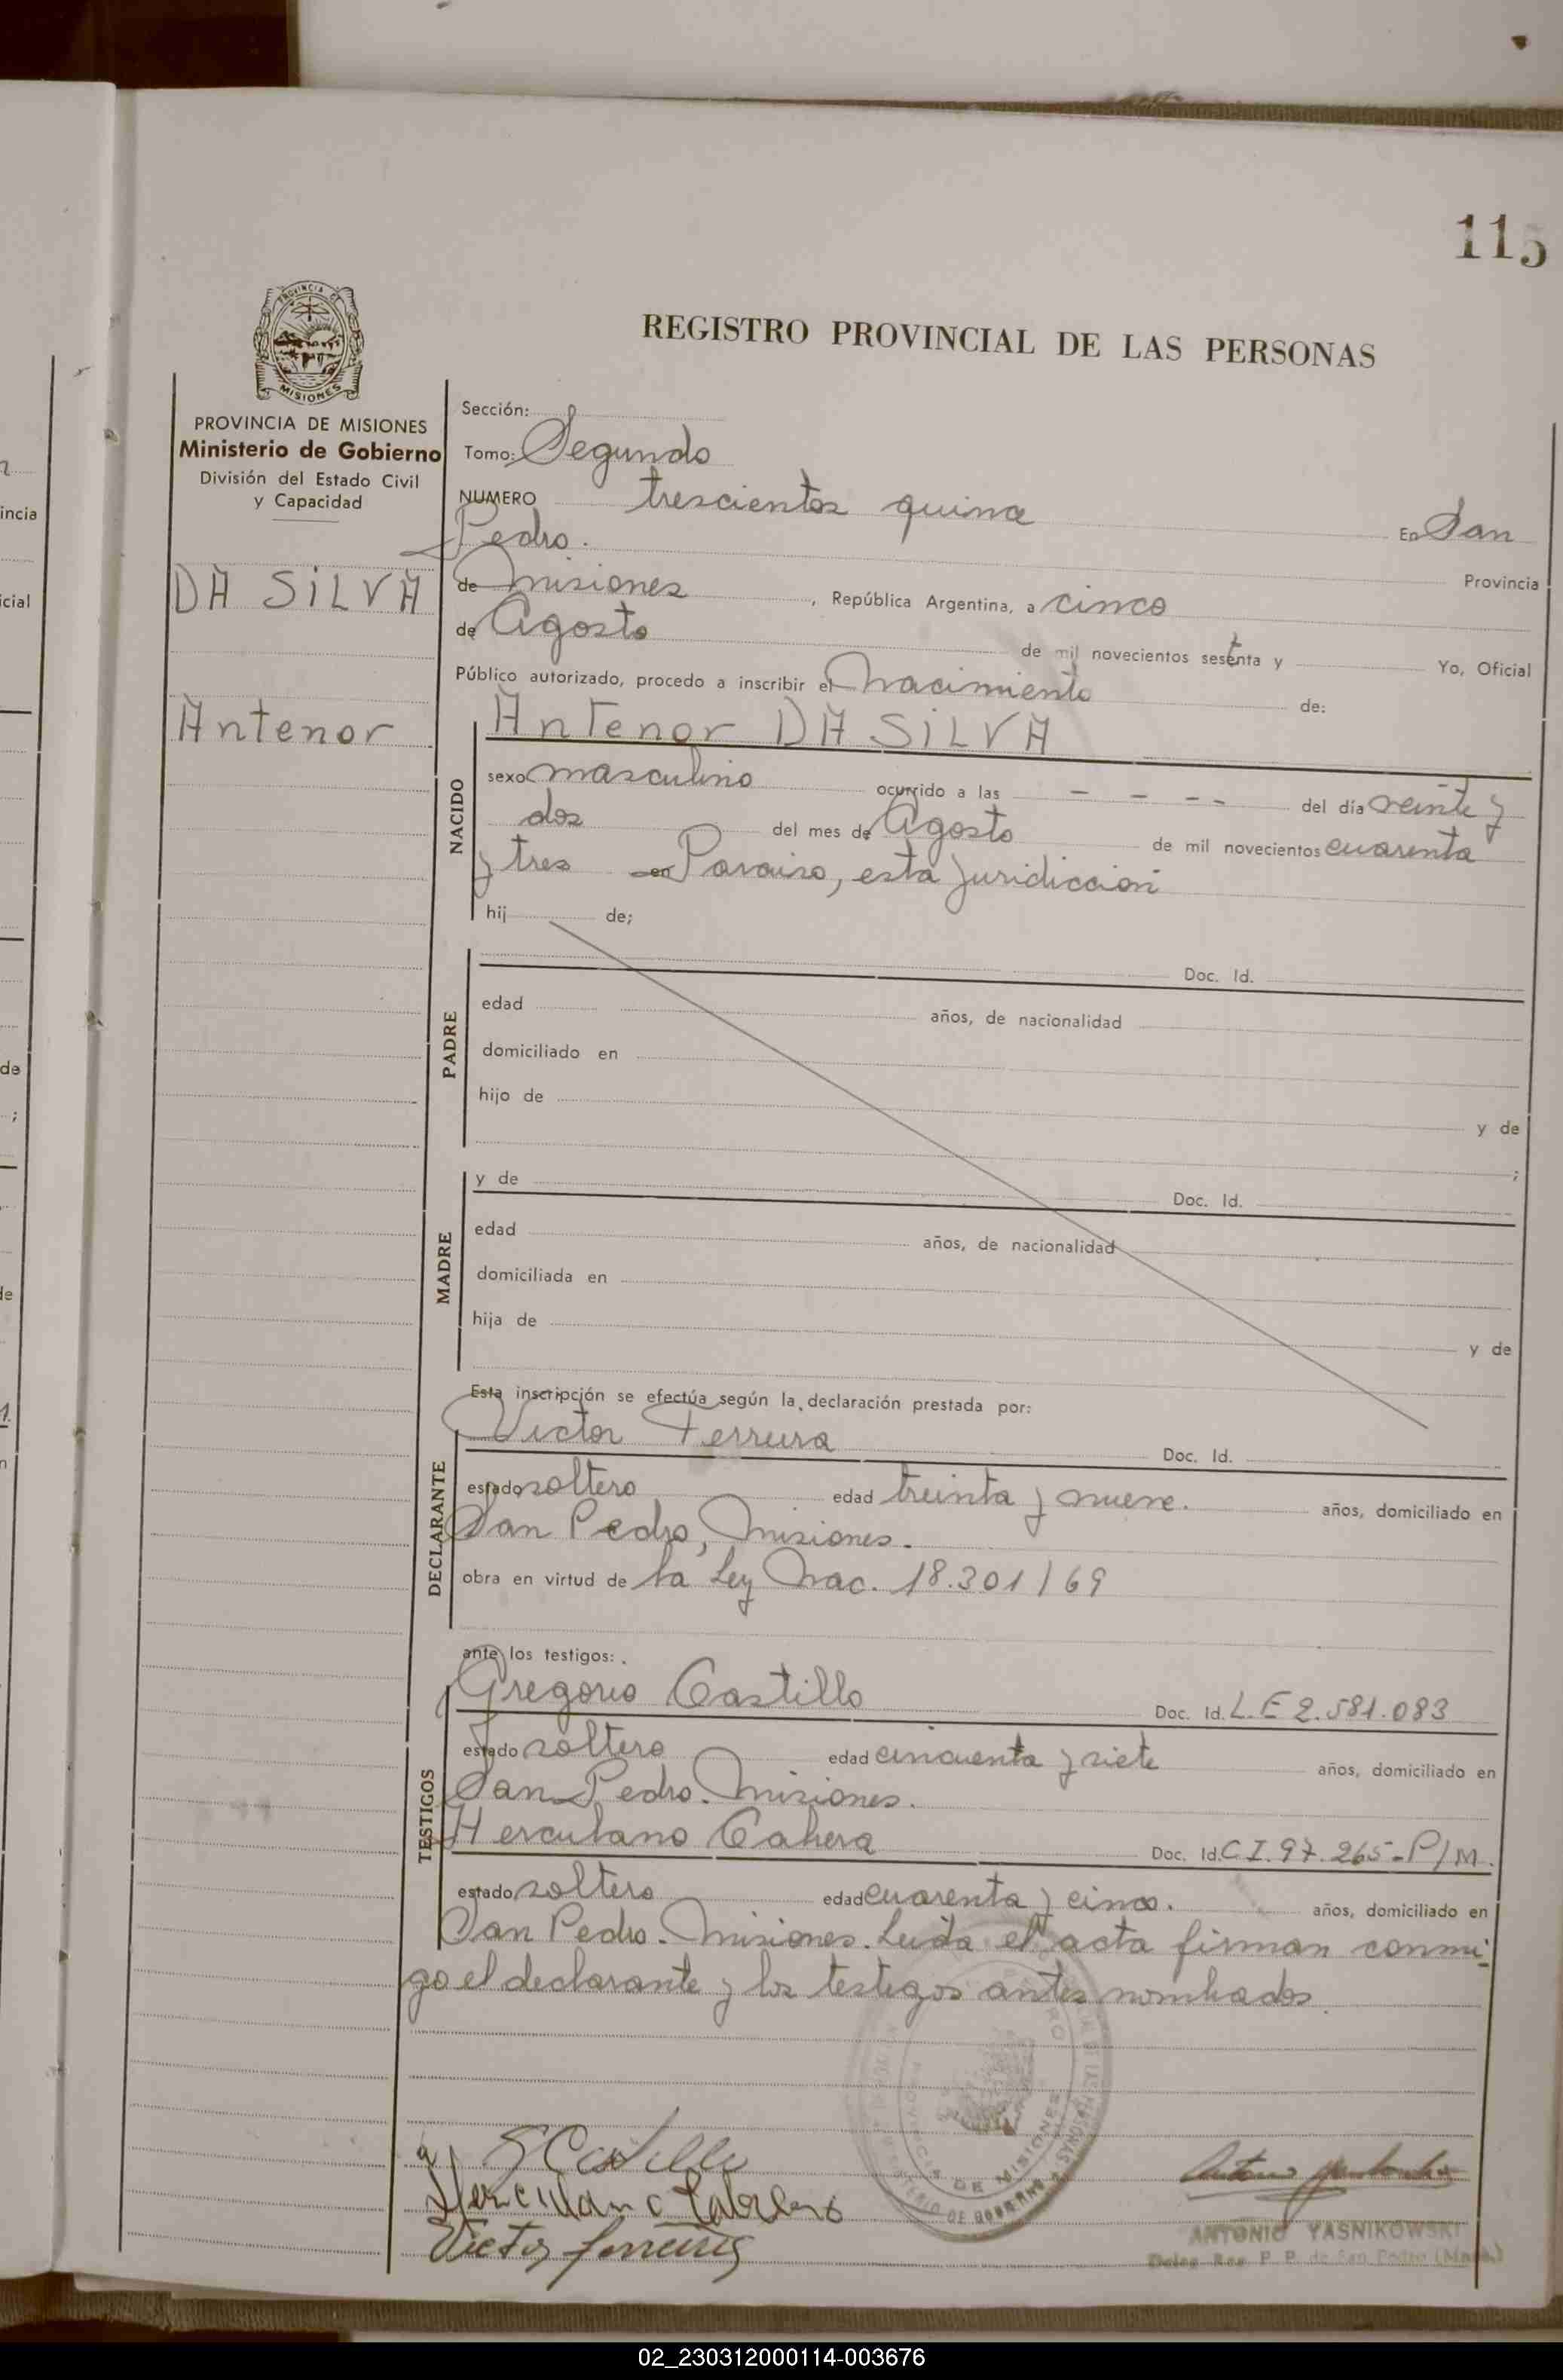 115
PROVINCIA DE
MISIONES
REGISTRO PROVINCIAL DE LAS PERSONAS
PROVINCIA DE MISIONES
Ministerio de Gobierno
División del Estado Civil
y Capacidad
DA SILVA
Antenor
Sección:
Tomo: Segundo
NUMERO trescientos quince En San
Pedro. Provincia
de Misiones, República Argentina, a cinco
de Agosto de mil novecientos setenta y Yo, Oficial
Público autorizado, procedo a inscribir el Nacimiento de:
NACIDO
Antenor DA SILVA
sexo masculino ocurrido a las - - - - del día veinte y
dos del mes de Agosto de mil novecientos cuarenta
y tres en Paraiso, esta Juridiccion
hij de;
PADRE
Doc. Id.
edad años, de nacionalidad
domiciliado en
hijo de y de
;
MADRE
y de Doc. Id.
edad años, de nacionalidad
domiciliada en
hija de y de
Esta inscripción se efectúa según la declaración prestada por:
DECLARANTE
Victor Ferreira Doc. Id.
estado soltero edad treinta y nueve. años, domiciliado en
San Pedro, Misiones.
obra en virtud de la Ley Nac. 18.301/69
ante los testigos:
TESTIGOS
Gregorio Castillo Doc. Id. L.E 2.581.083
estado soltero edad cincuenta y siete años, domiciliado en
San Pedro. Misiones.
Herculano Cabera Doc. Id. C I. 97.265-P/M.
estado soltero edad cuarenta y cinco. años, domiciliado en
San Pedro. Misiones. Leida el acta firman conmi-
go el declarante y los testigos antes nombrados.
G Castillo
Herculano
Victor Ferreira
DE MISIONES
ANTONIO YASNIKOWSKI
Deleg. Reg. P. P. de San Pedro (Mnes.)
02_230312000114-003676